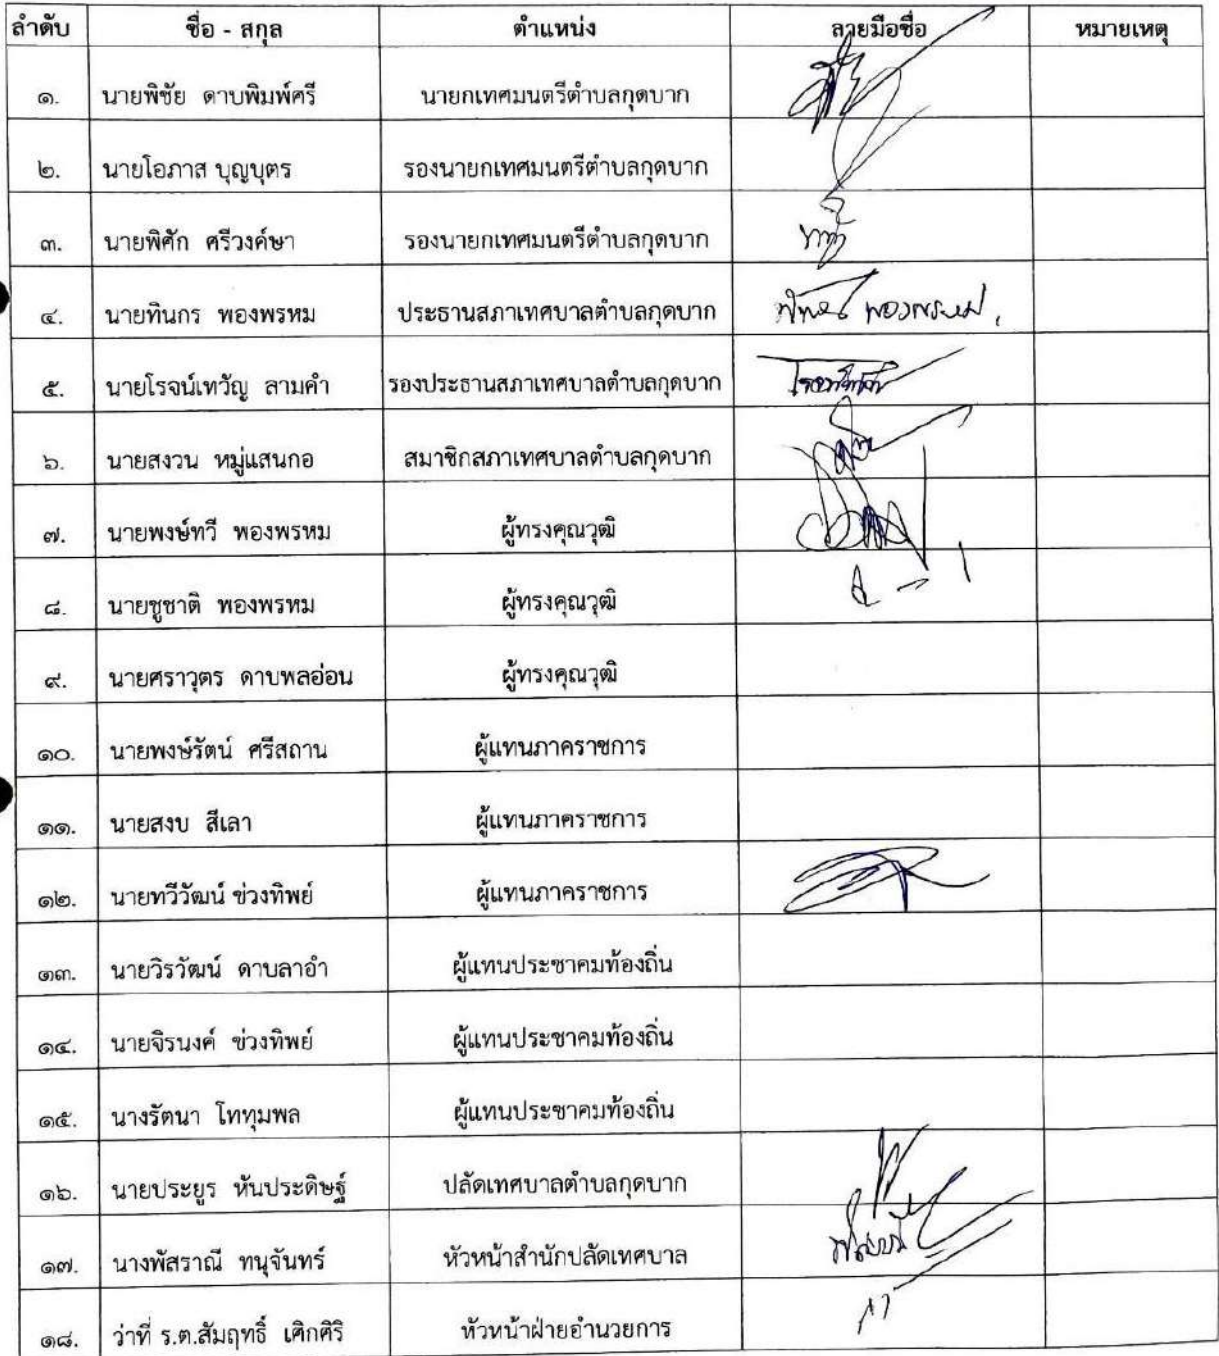 ลำดับ ชื่อ - สกุล ตำแหน่ง ลายมือชื่อ หมายเหตุ
๑. นายพิชัย ดาบพิมพ์ศรี นายกเทศมนตรีตำบลกุดบาก
๒. นายโอภาส บุญบุตร รองนายกเทศมนตรีตำบลกุดบาก
๓. นายพิศัก ศรีวงค์ษา รองนายกเทศมนตรีตำบลกุดบาก
๔. นายทินกร พองพรหม ประธานสภาเทศบาลตำบลกุดบาก พองพรหม
๕. นายโรจน์เทวัญ ลามคำ รองประธานสภาเทศบาลตำบลกุดบาก
๖. นายสงวน หมู่แสนกอ สมาชิกสภาเทศบาลตำบลกุดบาก
๗. นายพงษ์ทวี พองพรหม ผู้ทรงคุณวุฒิ
๘. นายชูชาติ พองพรหม ผู้ทรงคุณวุฒิ
๙. นายศราวุตร ดาบพลอ่อน ผู้ทรงคุณวุฒิ
๑๐. นายพงษ์รัตน์ ศรีสถาน ผู้แทนภาคราชการ
๑๑. นายสงบ สีเลา ผู้แทนภาคราชการ
๑๒. นายทวีวัฒน์ ช่วงทิพย์ ผู้แทนภาคราชการ
๑๓. นายวิรวัฒน์ ดาบลาอำ ผู้แทนประชาคมท้องถิ่น
๑๔. นายจิรนงค์ ช่วงทิพย์ ผู้แทนประชาคมท้องถิ่น
๑๕. นางรัตนา โททุมพล ผู้แทนประชาคมท้องถิ่น
๑๖. นายประยูร หันประดิษฐ์ ปลัดเทศบาลตำบลกุดบาก
๑๗. นางพัสราณี ทนุจันทร์ หัวหน้าสำนักปลัดเทศบาล
๑๘. ว่าที่ ร.ต.สัมฤทธิ์ เศิกศิริ หัวหน้าฝ่ายอำนวยการ